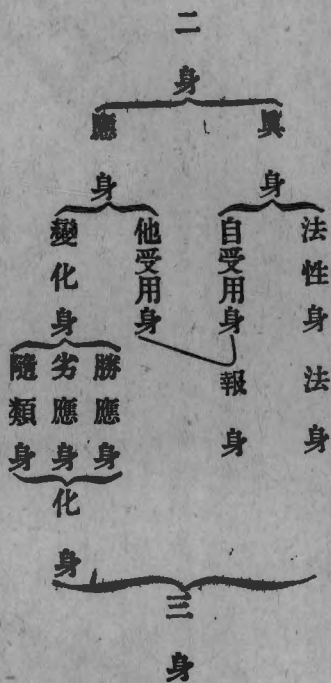 二身
眞身
應身
法性身
自受用身
他受用身
變化身
法身
報身
勝應身
劣應身
隨類身
化身
三身